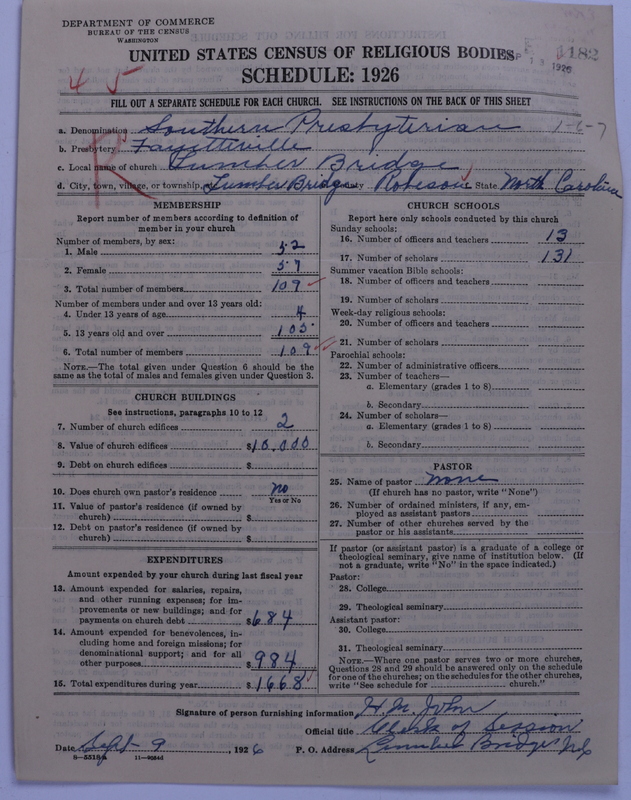 DEPARTMENT OF COMMERCE
BUREAU OF THE CENSUS
WASHINGTON
UNITED STATES CENSUS OF RELIGIOUS BODIES
SCHEDULE: 1926
1182
1926
4 5
FILL OUT A SEPARATE SCHEDULE FOR EACH CHURCH. SEE INSTRUCTIONS ON THE BACK OF THIS SHEET
a. Denomination Southern Presbyterian 1-6-7
b. Presbytery Fayetteville
R
c. Local name of church Lumber Bridge
d. City, town, village, or township, Lumber Bridge County Robeson State North Carolina
MEMBERSHIP
Report number of members according to definition of
member in your church
Number of members, by sex:
1. Male 52
2. Female 57
3. Total number of members 109
Number of members under and over 13 years old:
4. Under 13 years of age 4
5. 13 years old and over 105
6. Total number of members 109
NOTE.—The total given under Question 6 should be
same as the total of males and females given under Question 3.
CHURCH BUILDINGS
See instructions, paragraphs 10 to 12
7. Number of church edifices 2
8. Value of church edifices $10,000
9. Debt on church edifices $
10. Does church own pastor's residence no
Yes or No
11. Value of pastor's residence (if owned by
church) $
12. Debt on pastor's residence (if owned by
church) $
EXPENDITURES
Amount expended by your church during last fiscal year
13. Amount expended for salaries, repairs,
and other running expenses; for im-
provements or new buildings; and for
payments on church debt $684
14. Amount expended for benevolences, in-
cluding home and foreign missions; for
denominational support; and for all
other purposes $984
15. Total expenditures during year $1668
CHURCH SCHOOLS
Report here only schools conducted by this church
Sunday schools:
16. Number of officers and teachers 13
17. Number of scholars 131
Summer vacation Bible schools:
18. Number of officers and teachers
19. Number of scholars
Week-day religious schools:
20. Number of officers and teachers
21. Number of scholars
Parochial schools:
22. Number of administrative officers
23. Number of teachers—
a. Elementary (grades 1 to 8)
b. Secondary
24. Number of scholars—
a. Elementary (grades 1 to 8)
b. Secondary
PASTOR
25. Name of pastor none
(If church has no pastor, write "None")
26. Number of ordained ministers, if any, em-
ployed as assistant pastors
27. Number of other churches served by the
pastor or his assistants
If pastor (or assistant pastor) is a graduate of a college or
theological seminary, give name of institution below. (If
not a graduate, write "No" in the space indicated.)
Pastor:
28. College
29. Theological seminary
Assistant pastor:
30. College
31. Theological seminary
NOTE.—Where one pastor serves two or more churches,
Questions 28 and 29 should be answered only on the schedule
for one of the churches; on the schedules for the other churches,
write "See schedule for church."
Signature of person furnishing information H. M. John
Official title Clerk of Session
Date Sept 9, 1926 P. O. Address Lumber Bridge N C
8-5518a 11-9054d